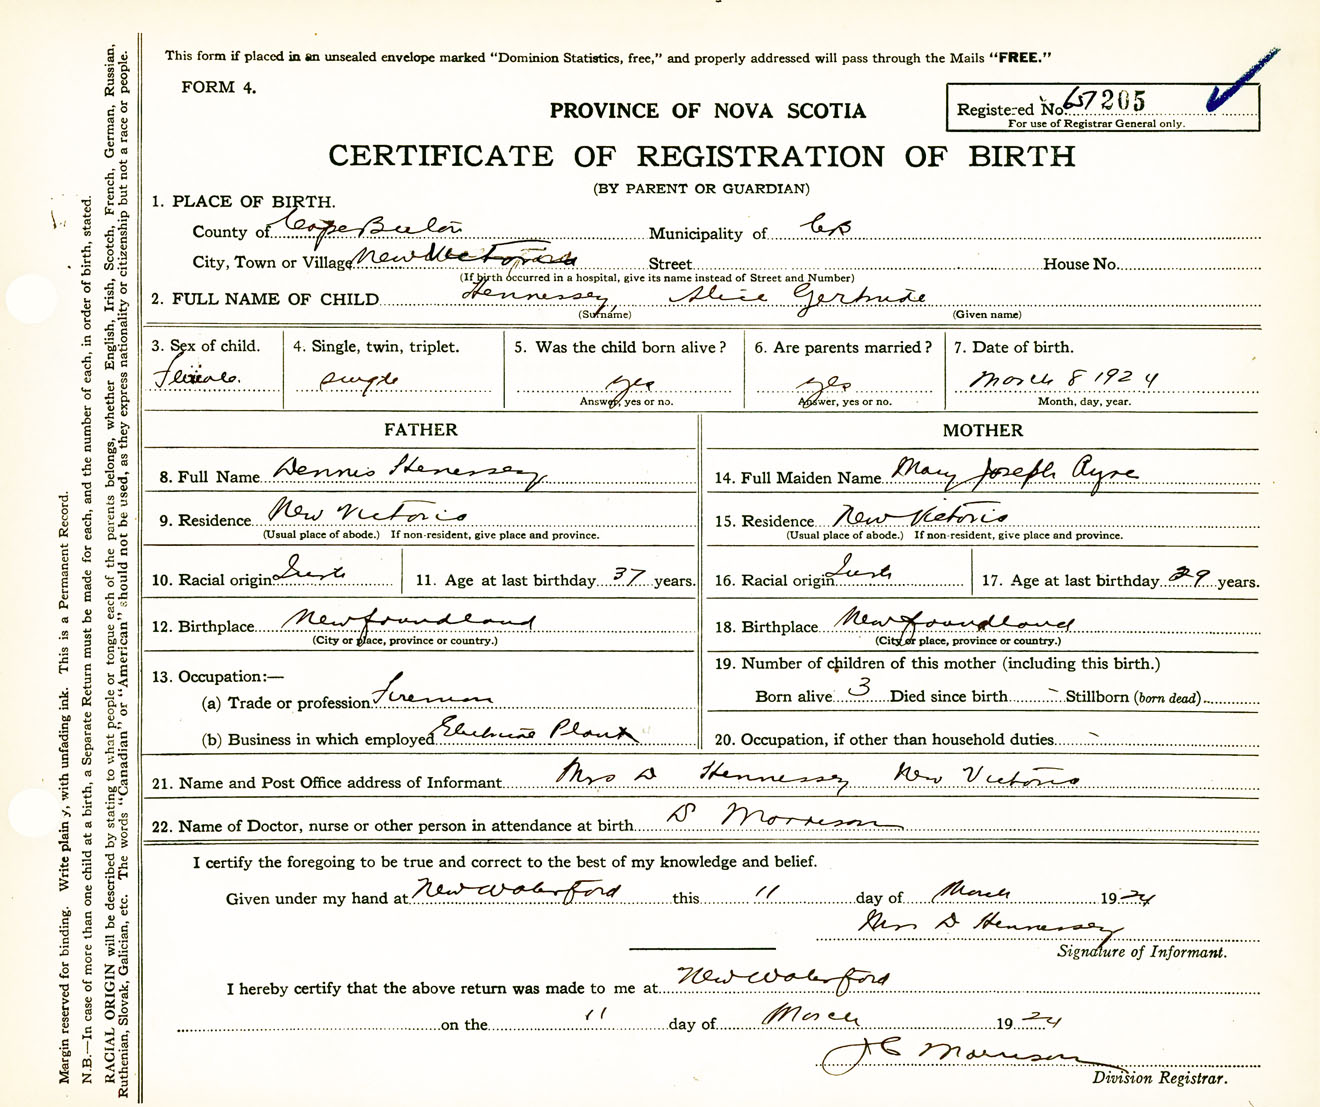 This form if placed in an unsealed envelope marked "Dominion Statistics, free," and properly addressed will pass through the Mails "FREE."
FORM 4.
PROVINCE OF NOVA SCOTIA
Registered No. 657205
For use of Registrar General only.
CERTIFICATE OF REGISTRATION OF BIRTH
(BY PARENT OR GUARDIAN)
1. PLACE OF BIRTH.
County of Cape Breton Municipality of CB
City, Town or Village New Victoria Street House No.
(If birth occurred in a hospital, give its name instead of Street and Number)
2. FULL NAME OF CHILD Hennessey Alice Gertrude
(Surname) (Given name)
3. Sex of child. 4. Single, twin, triplet. 5. Was the child born alive? 6. Are parents married? 7. Date of birth.
Female. single yes yes March 8 1924
Answer, yes or no. Answer, yes or no. Month, day, year.
FATHER MOTHER
8. Full Name Dennis Henessey 14. Full Maiden Name Mary Joseph Ayre
9. Residence New Victoria 15. Residence New Victoria
(Usual place of abode.) If non-resident, give place and province. (Usual place of abode.) If non-resident, give place and province.
10. Racial origin Irish 11. Age at last birthday 37 years. 16. Racial origin Irish 17. Age at last birthday 29 years.
12. Birthplace Newfoundland 18. Birthplace Newfoundland
(City or place, province or country.) (City or place, province or country.)
19. Number of children of this mother (including this birth.)
13. Occupation:—
(a) Trade or profession Fireman Born alive 3 Died since birth - Stillborn (born dead)
(b) Business in which employed Electric Plant 20. Occupation, if other than household duties -
21. Name and Post Office address of Informant Mrs D Hennessey New Victoria
22. Name of Doctor, nurse or other person in attendance at birth D Morrison
I certify the foregoing to be true and correct to the best of my knowledge and belief.
Given under my hand at New Waterford this 11 day of March 1924
Mrs D Hennessey
Signature of Informant.
I hereby certify that the above return was made to me at New Waterford
on the 11 day of March 1924
J C Morrison
Division Registrar.
Margin reserved for binding. Write plainly, with unfading ink. This is a Permanent Record.
N.B.—In case of more than one child at a birth, a Separate Return must be made for each, and the number of each, in order of birth, stated.
RACIAL ORIGIN will be described by stating to what people or tongue each of the parents belongs, whether English, Irish, Scotch, French, German, Russian,
Ruthenian, Slovak, Galician, etc. The words "Canadian" or "American" should not be used, as they express nationality or citizenship but not a race or people.